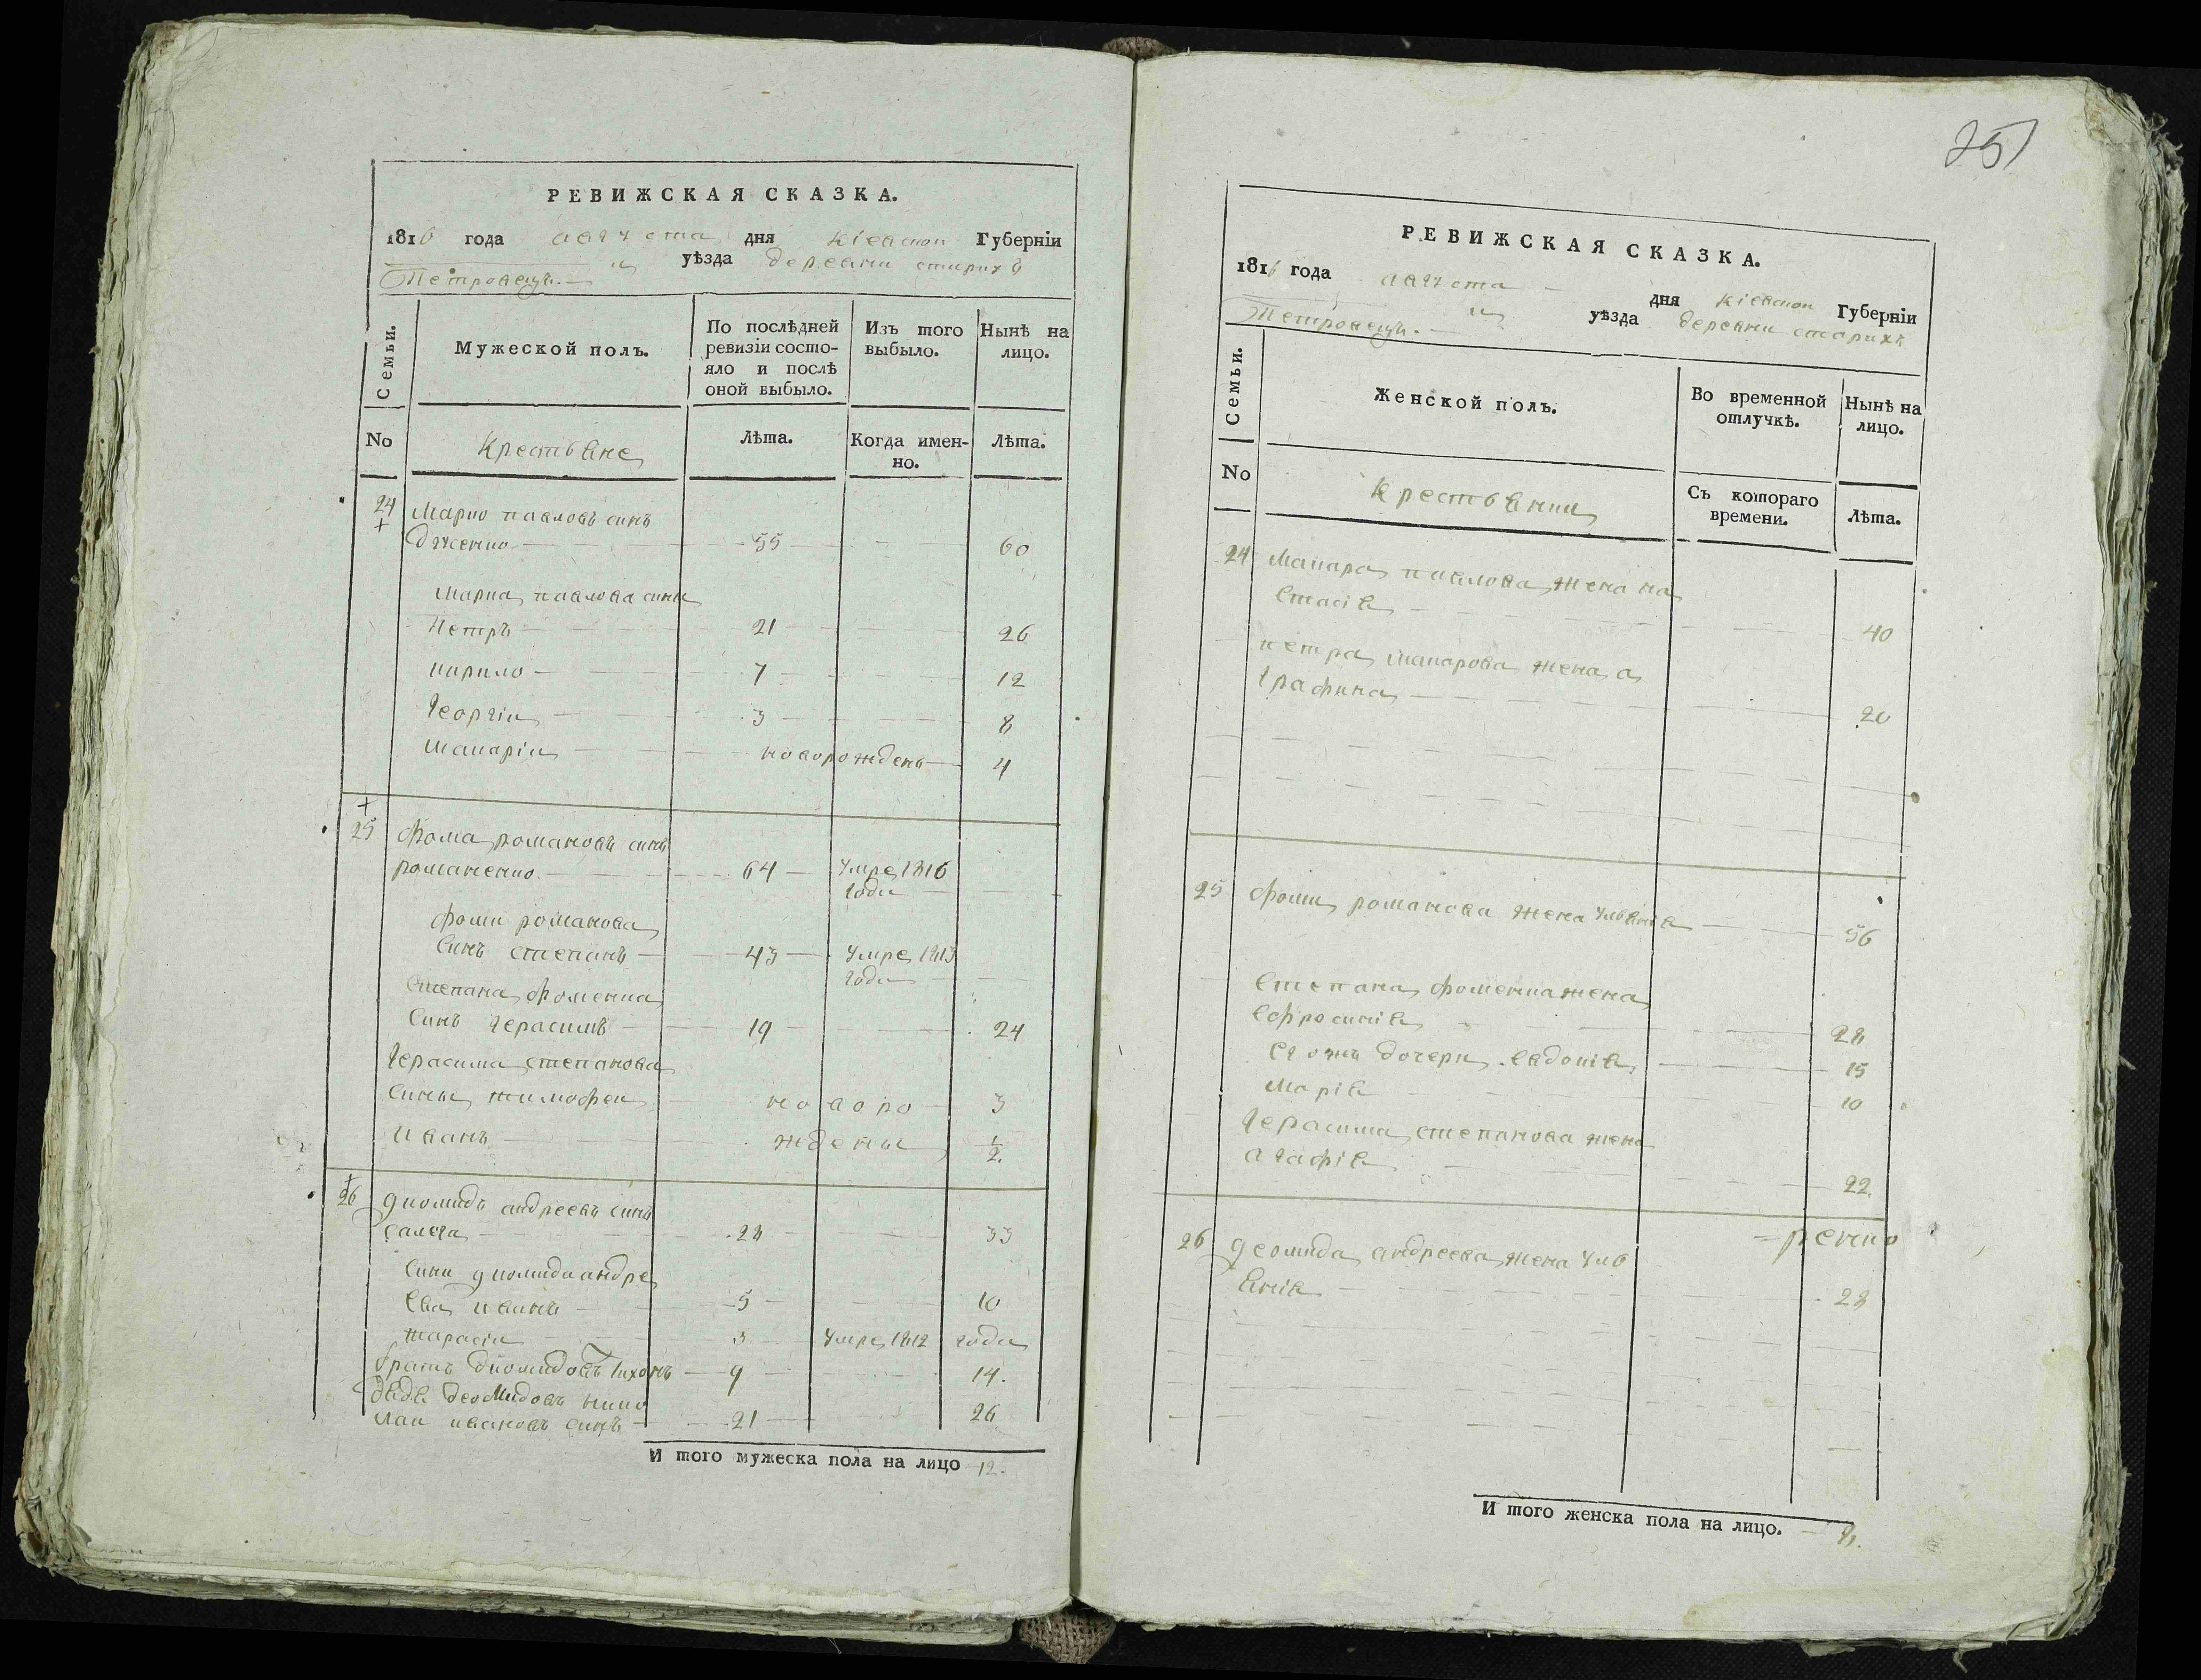 251
РЕВИЖСКАЯ СКАЗКА.
1816 года августа дня Кіевской Губерніи
уѣзда деревни старихъ
Петровецъ.
Семьи.
Мужеской полъ.
По послѣдней ревизіи состо-
яло и послѣ оной выбыло.
Изъ того выбыло.
Нынѣ на лицо.
No
Крестьяне
Лѣта.
Когда имен-
но.
Лѣта.
24 Марко павловъ синъ
55 60
Марка павлова сини
Петръ 21 26
кирило 7 12
Георгіи 3 8
Макаріи новорожденъ 4
25 Фома романовъ синъ
романенко 64 Умре 1816
года
фоми романова
синъ степанъ 43 Умре 1813
года
степана фоменка
синъ герасимъ 19 24
Герасима степанова
сины тимофеи новоро 3
иванъ ждены 1/2
26 диомидъ андреевъ синъ
33
сини диомида андре
ева иванъ 5 10
тарасіи 3 Умре 1812 года
братъ диомидовъ тихонъ 9 14.
дядя деомидовъ нико
лаи ивановъ синъ 21 26
И того мужеска пола на лицо 12.
РЕВИЖСКАЯ СКАЗКА.
1816 года августа дня Кіевской Губерніи
уѣзда деревни старихъ
Петровецъ.
Семьи.
Женской полъ.
Во временной отлучкѣ.
Нынѣ на лицо.
No
Крестьянки
Съ котораго времени.
Лѣта.
24 Макара павлова жена на
стасія 40
петра макарова жена а
графина 20
25 фоми романова жена ульянія 56
степана фоменка жена
ефросинія 28
его жъ дочери евдокія 15
Марія 10
Герасима степанова жена
агафія 22.
26 деомида андреева жена уль
янія
И того женска пола на лицо. 8.